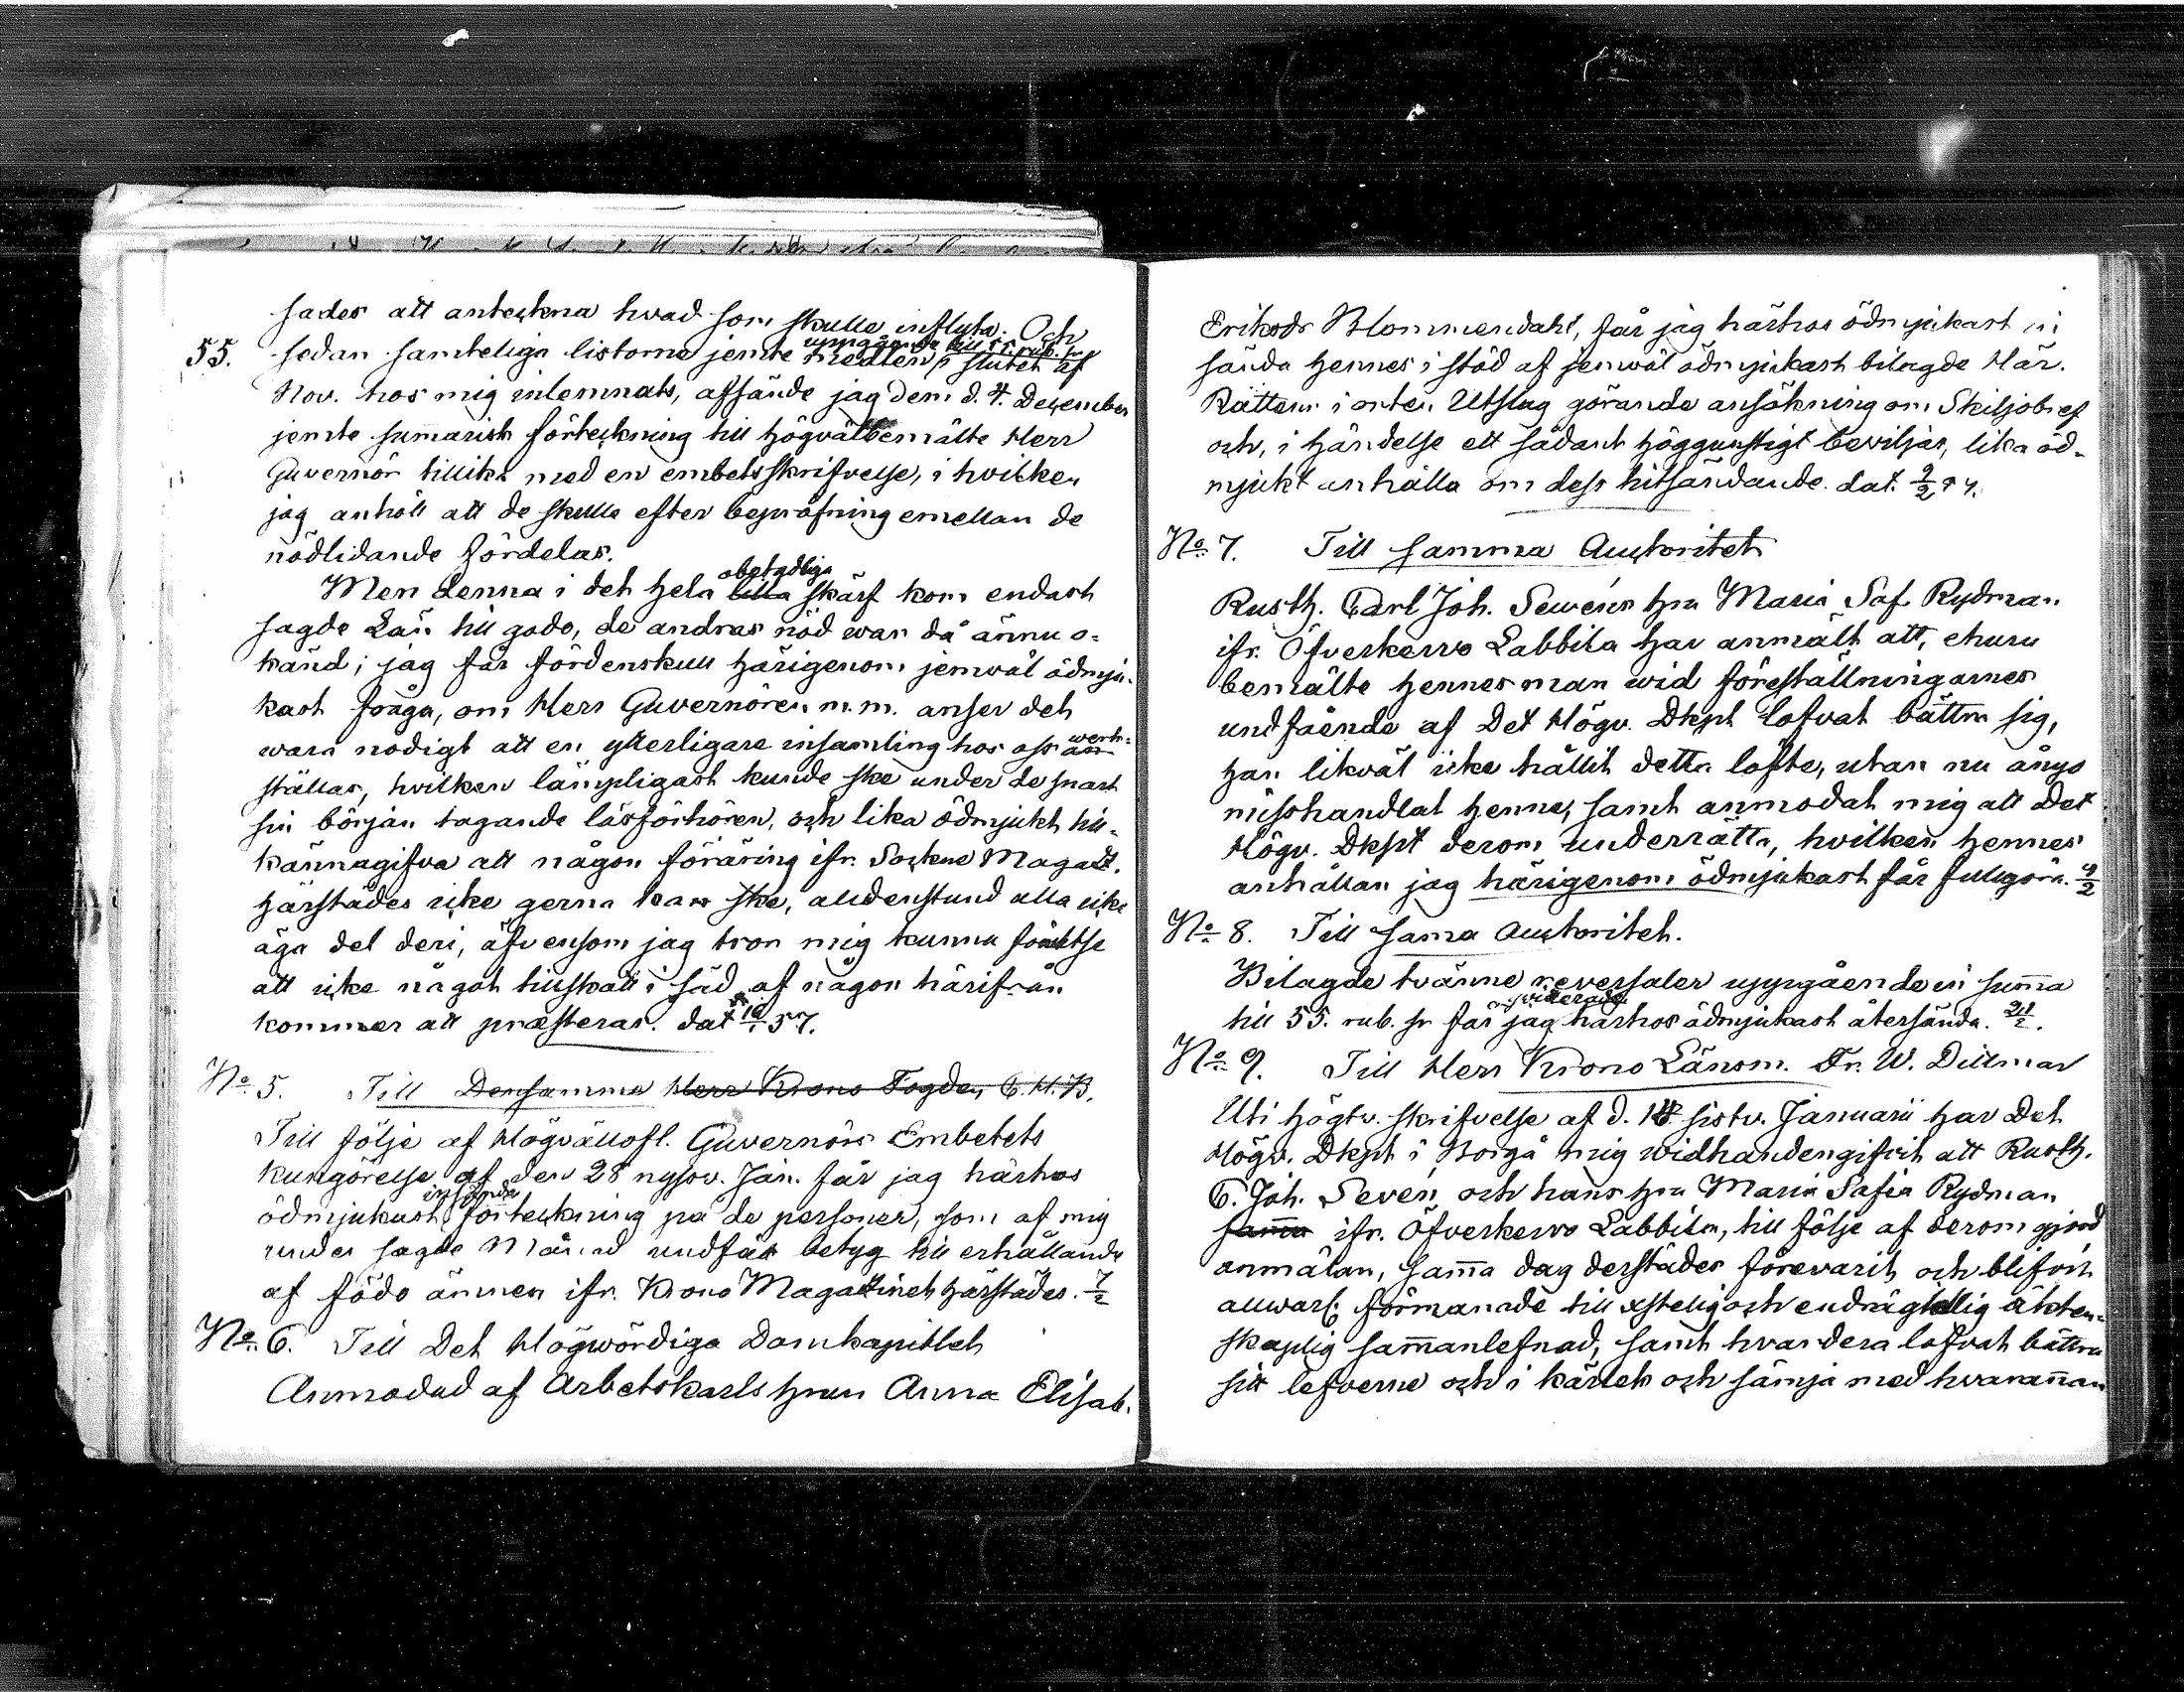 sades att anteckna hvad som skulle inflyta. Och
55. sedan samteliga listorne jemte uppgående till 55 rub. sr medlen i slutet af
Nov. hos mig inlemnats, afsände jag dem d. 4. December
jemte sumarisk förteckning till högvälbemälte Herr
Guvernör tillika med en embetsskrifvelse, i hvilken
jag anhöll att de skulle efter bepröfning emellan de
nödlidande fördelas.
Men denna i det hela obetydliga lilla skärf kom endast
sagde Län till godo, de andras nöd war då ännu o-
känd; jag får fördenskull härigenom jemwäl ödmju-
kast fråga, om Herr Guvernören m.m. anser det
wara nödigt att en ytterligare insamling hos oss werk-
ställas, hvilken lämpligast kunde ske under de snart
sin början tagande läsförhören, och lika ödmjukt till-
kännagifva att någon föräring ifr. Sockne Magaz.
härstädes icke gerna kan ske, alldenstund alla icke
äga del deri, äfvensom jag tror mig kunna förutse
att icke något tillskott i säd af någon härifrån
kommer att præsteras. dat 19/1 57.
No 5. Till Densamme Herr Krono Fogden C. H. B.
Till följe af Högvällofl. Guvernörs Embetets
kungörelse af den 28 nysov. Jan. får jag härhos
ödmjukast insända förteckning på de personer, som af mig
under sagde Månad undfått betyg till erhållande
af födo ämnen ifr. Krono Magazinet härstädes. 7/2
No 6. Till Det Högwördiga Domkapitlet
Anmodad af Arbetskarls hrun Anna Elisab.
Eriksdr Blommendahl, får jag härhos ödmjukast in
sända hennes i stöd af jemwäl ödmjukast bilagde Här.
Rättens i orten Utslag görande ansökning om Skiljobref
och, i händelse ett sådant höggunstigt beviljas, lika öd-
mjukt anhålla om dess hitsändande. dat. 9/2 57.
No 7. Till samma Auctoritet
Rusth. Carl Joh. Sewéns hru Maria Sof. Rydman
ifr. Öfverkerro Labbila har anmält att, ehuru
bemälte hennes man wid föreställningarnes
undfående af Det Högv. Dkplt lofvat bättra sig,
han likväl icke hållit detta löfte, utan nu ånyo
misshandlat henne, samt anmodat mig att Det
Högv. Dkplt derom underrätta, hvilken hennes
anhållan jag härigenom ödmjukast får fullgöra. 9/2
No 8. Till sama Auctoritet.
Bilagde tvänne reversaler uppgående in suma
till 55. rub. sr får jag qvitterade härhos ödmjukast återsända. 21/2.
No 9. Till Herr Krono Länsm. Fr. W. Dittmar
Uti högtv. skrifvelse af d. 14 sistv. Januarii har Det
Högv. Dkplt i Borgå mig widhandengifvit att Rusth.
C. Joh. Sevén och hans hru Maria Sofia Rydman
sama ifr. Öfverkervo Labbila, till följe af derom gjord
anmälan, sama dag derstädes förevarit och blifvit
allwarl. förmanade till christelig och endrägtelig äkten-
skaplig samanlefnad, samt hvardera lofvat bättra
sitt lefverne och i kärlek och sämja med hvaranan